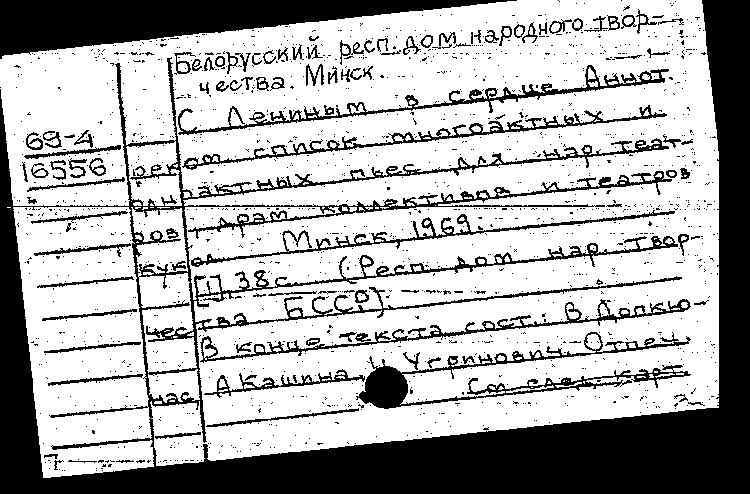 Белорусский респ. дом народного твор-
чества. Минск.
С Лениным в сердце. Аннот.
69-4
реком. список многоактных и
16556
однрактных пьес для нар. театр-
ров, драм. коллективов и театров
кукол. Минск, 1969.
[1], 38 с. (Респ. дом нар. твор-
чества БССР).
В конце текста сост.: В. Допкю-
нас, А Кашина, И Угринович. Отпеч.
См. след. карт.